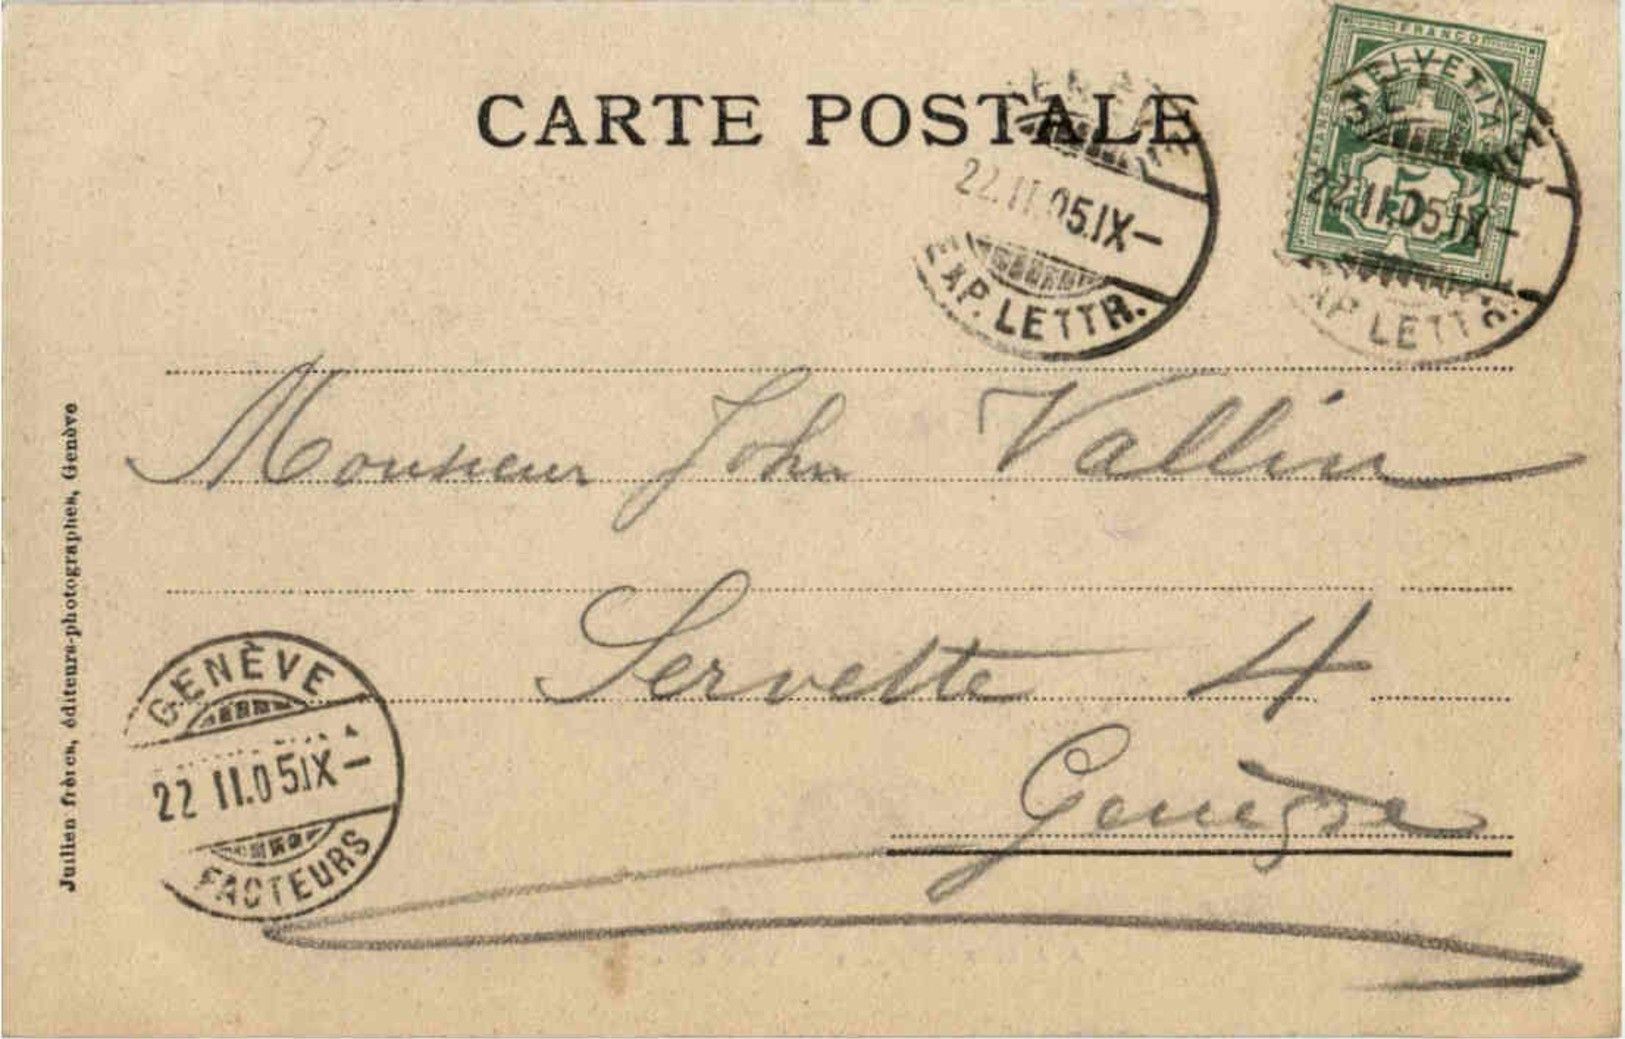 CARTE POSTALE
FRANCO
HELVETIA
5
GENÈVE
22.II.05.IX–
EXP. LETTR.
GENÈVE
22.II.05.IX–
EXP. LETTR.
Monsieur John Vallin
Servette 4
Genève
GENÈVE
22 II.05.IX–
FACTEURS
Jullien frères, éditeurs-photographes, Genève